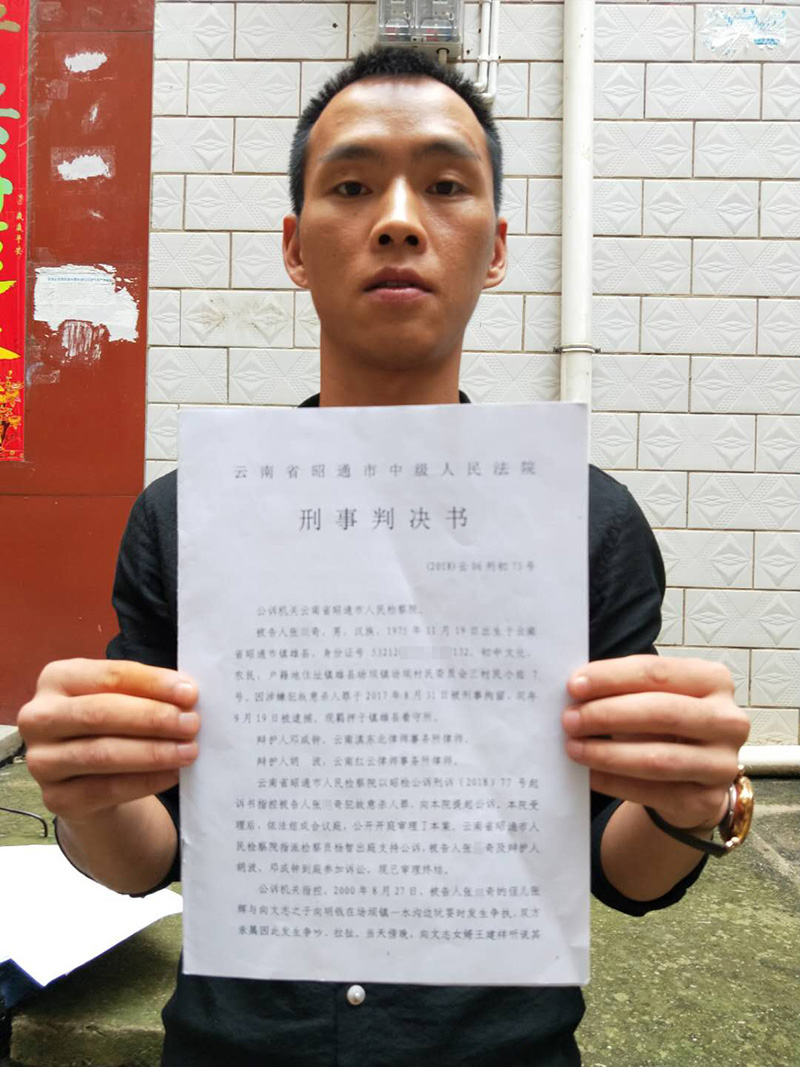 岁岁平安
云南省昭通市中级人民法院
刑事判决书
(2018)云06刑初75号
公诉机关云南省昭通市人民检察院。
被告人张川奇，男，汉族，1975年11月19日出生于云南
省昭通市镇雄县，身份证号53212 132，初中文化，
农民，户籍地住址镇雄县场坝镇场坝村民委员会三村民小组7
号。因涉嫌犯故意杀人罪于2017年8月31日被刑事拘留，同年
9月19日被逮捕。现羁押于镇雄县看守所。
辩护人邓成钟，云南滇东北律师事务所律师。
辩护人胡 波，云南红云律师事务所律师。
云南省昭通市人民检察院以昭检公诉刑诉（2018）77号起
诉书指控被告人张川奇犯故意杀人罪，向本院提起公诉。本院受
理后，依法组成合议庭，公开开庭审理了本案。云南省昭通市人
民检察院指派检察员杨智出庭支持公诉，被告人张 奇及辩护人
胡波、邓成钟到庭参加诉讼。现已审理终结。
公诉机关指控，2000年8月27日，被告人张川奇的侄儿张
辉与向文志之子向明钱在场坝镇一水沟边玩耍时发生争执，双方
亲属因此发生争吵、拉扯。当天傍晚，向文志女婿王建祥听说其